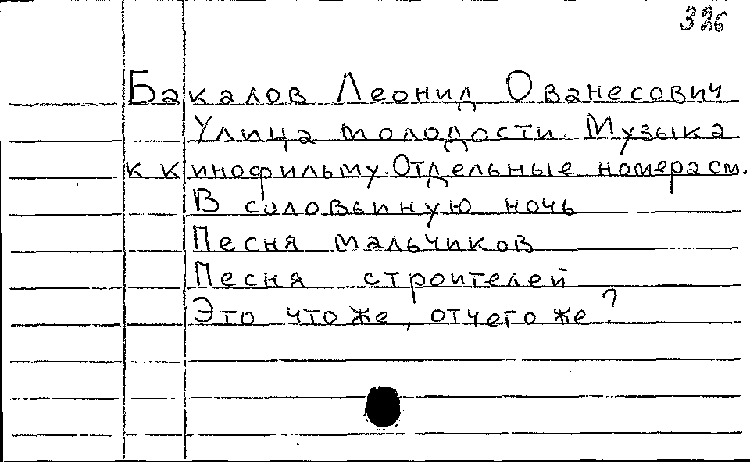 326
Бакалов Леонид Ованесович
Улица молодости. Музыка
к кинофильму. Отдельные номера см.
В соловьиную ночь
Песня мальчиков
Песня строителей
Это что же, отчего же?